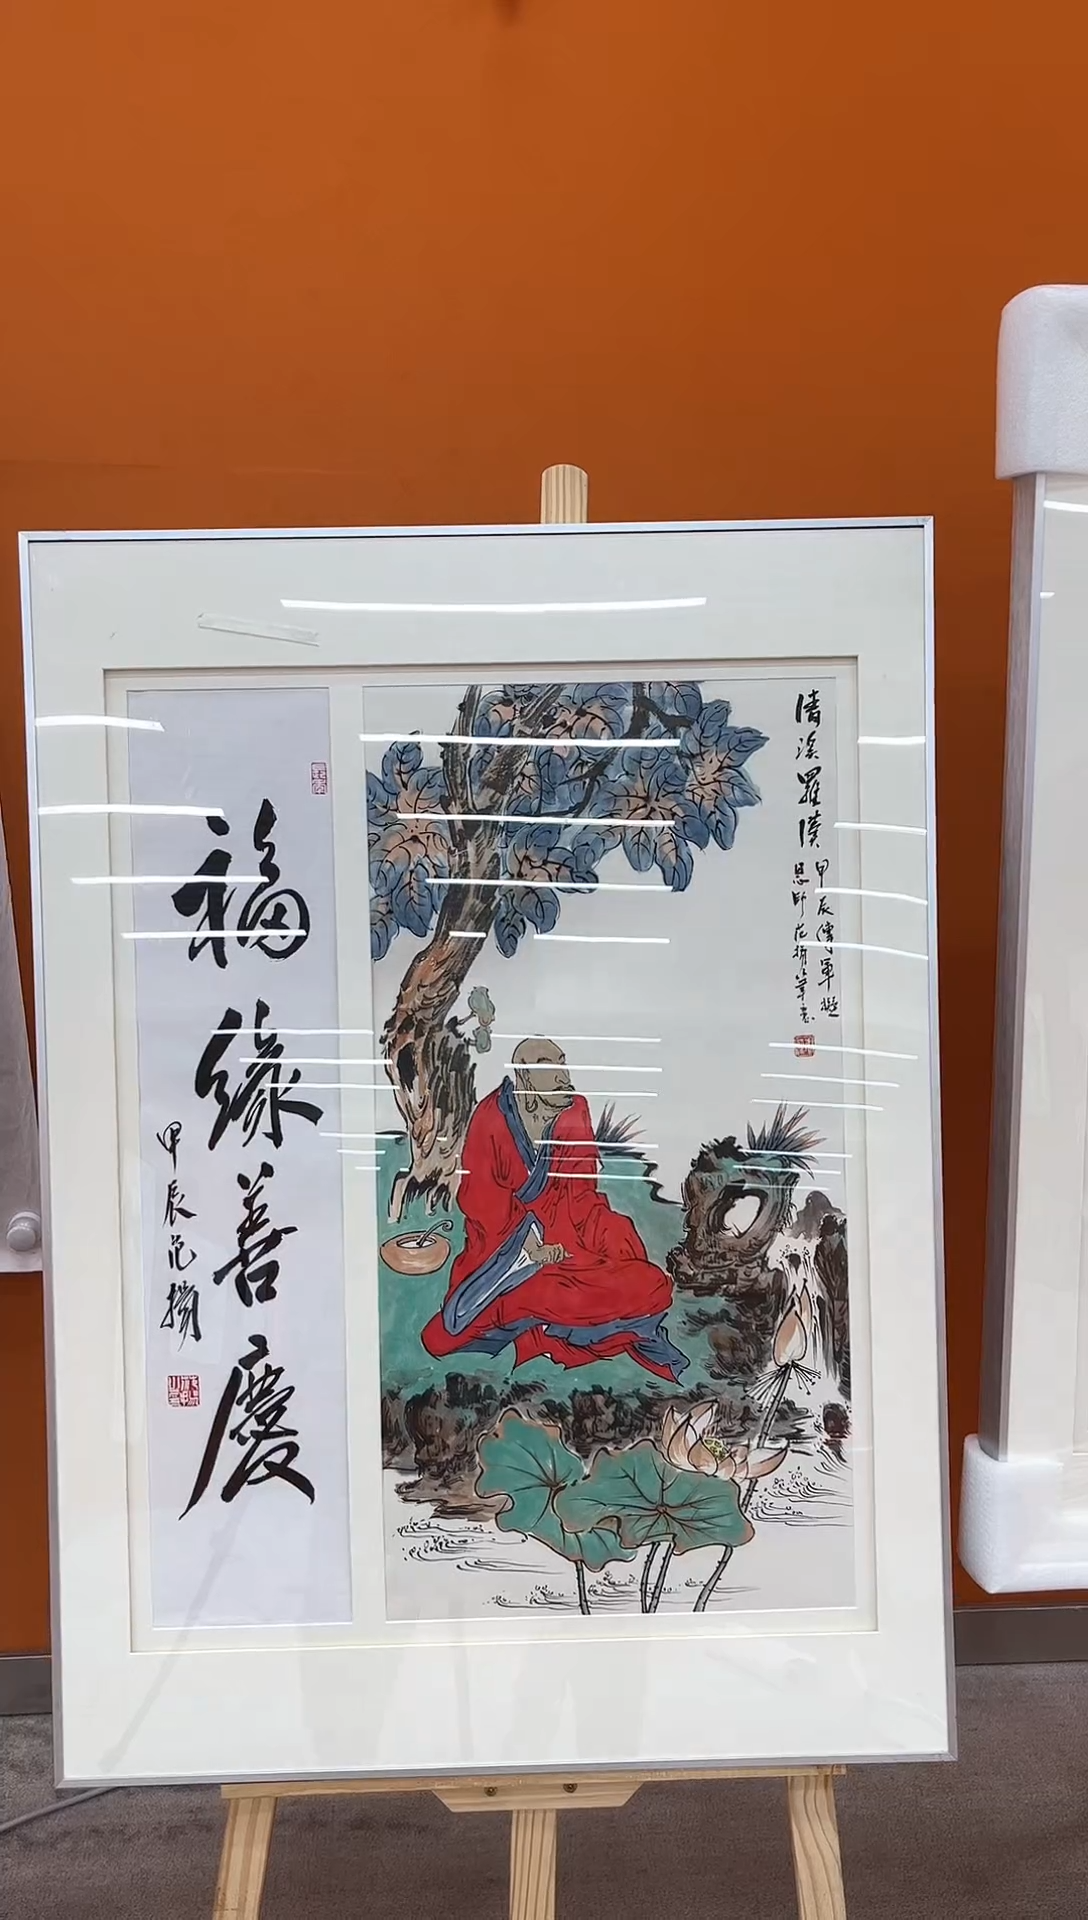 清溪羅漢
甲辰傳軍擬
恩師范揚筆意
福緣善慶
甲辰范揚